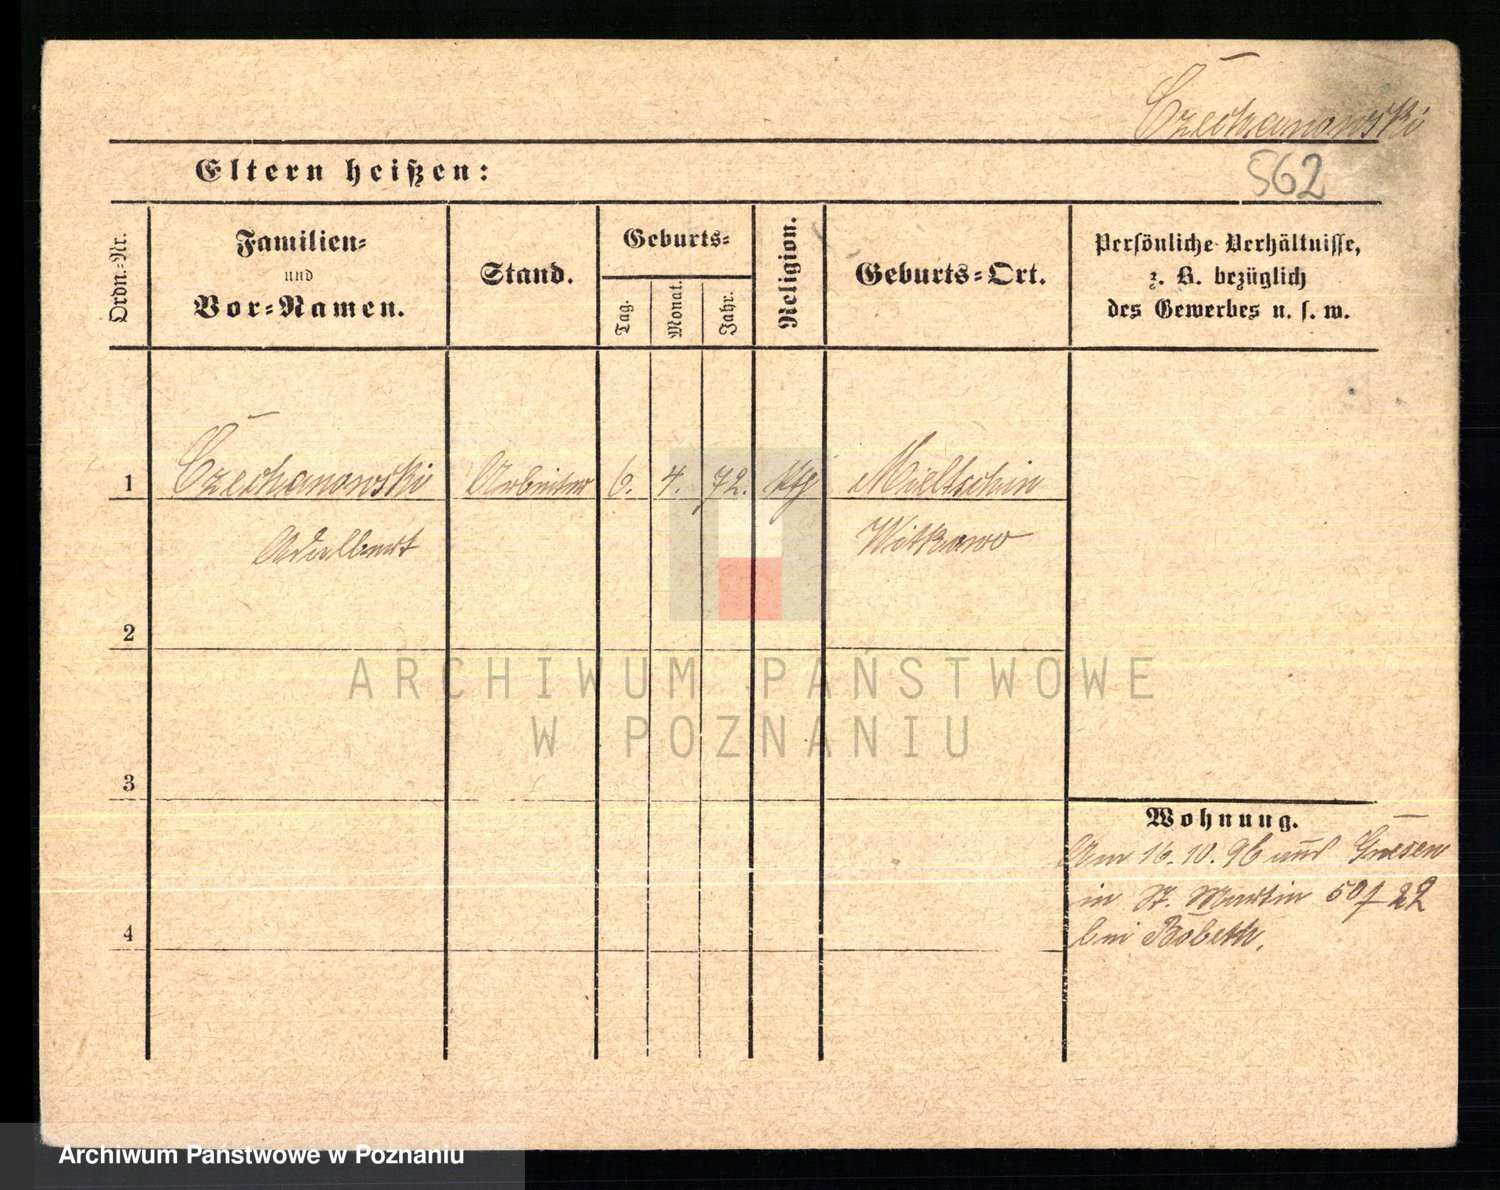 Czechanowski
562
Eltern heißen:
Ordn.-Nr.
Familien-
und
Vor-Namen.
Stand.
Geburts-
Tag.
Monat.
Jahr.
Religion.
Geburts-Ort.
Persönliche Verhältnisse,
z. B. bezüglich
des Gewerbes u. s. w.
1 Czechanowski Arbeiter 6. 4. 72. Mieltschin
Adalbert Witkowo
2
3
4
Wohnung.
Am 16.10.96 aus Gnesen
in St. Martin 50/22
bei Bobeth.
ARCHIWUM PAŃSTWOWE
W POZNANIU
Archiwum Państwowe w Poznaniu